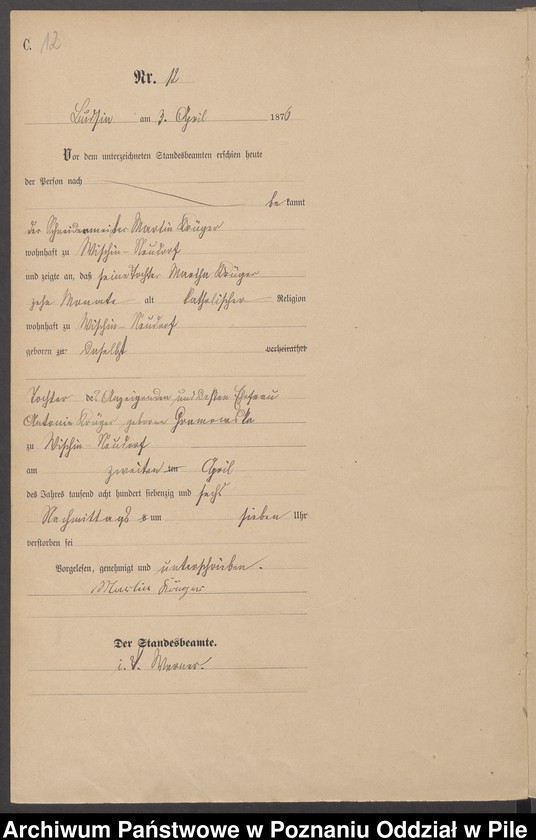 C. 12
Nr. 12
Budsin am 3. April 1876
Vor dem unterzeichneten Standesbeamten erschien heute
der Person nach
be kannt
der Schneidermeister Martin Krüger
wohnhaft zu Wischin-Neudorf
und zeigte an, daß seine Tochter Martha Krüger
zehn Monate alt katholischer Religion
wohnhaft zu Wischin-Neudorf
geboren zu daselbst verheirathet
Tochter des Anzeigenden und dessen Ehefrau
Antonie Krüger geborene
zu Wischin Neudorf
am zweiten ten April
des Jahres tausend acht hundert siebenzig und sechs
Nachmittags um sieben Uhr
verstorben sei
Vorgelesen, genehmigt und unterschrieben.
Martin Krüger
Der Standesbeamte.
i. V. Werner.
Archiwum Państwowe w Poznaniu Oddział w Pile